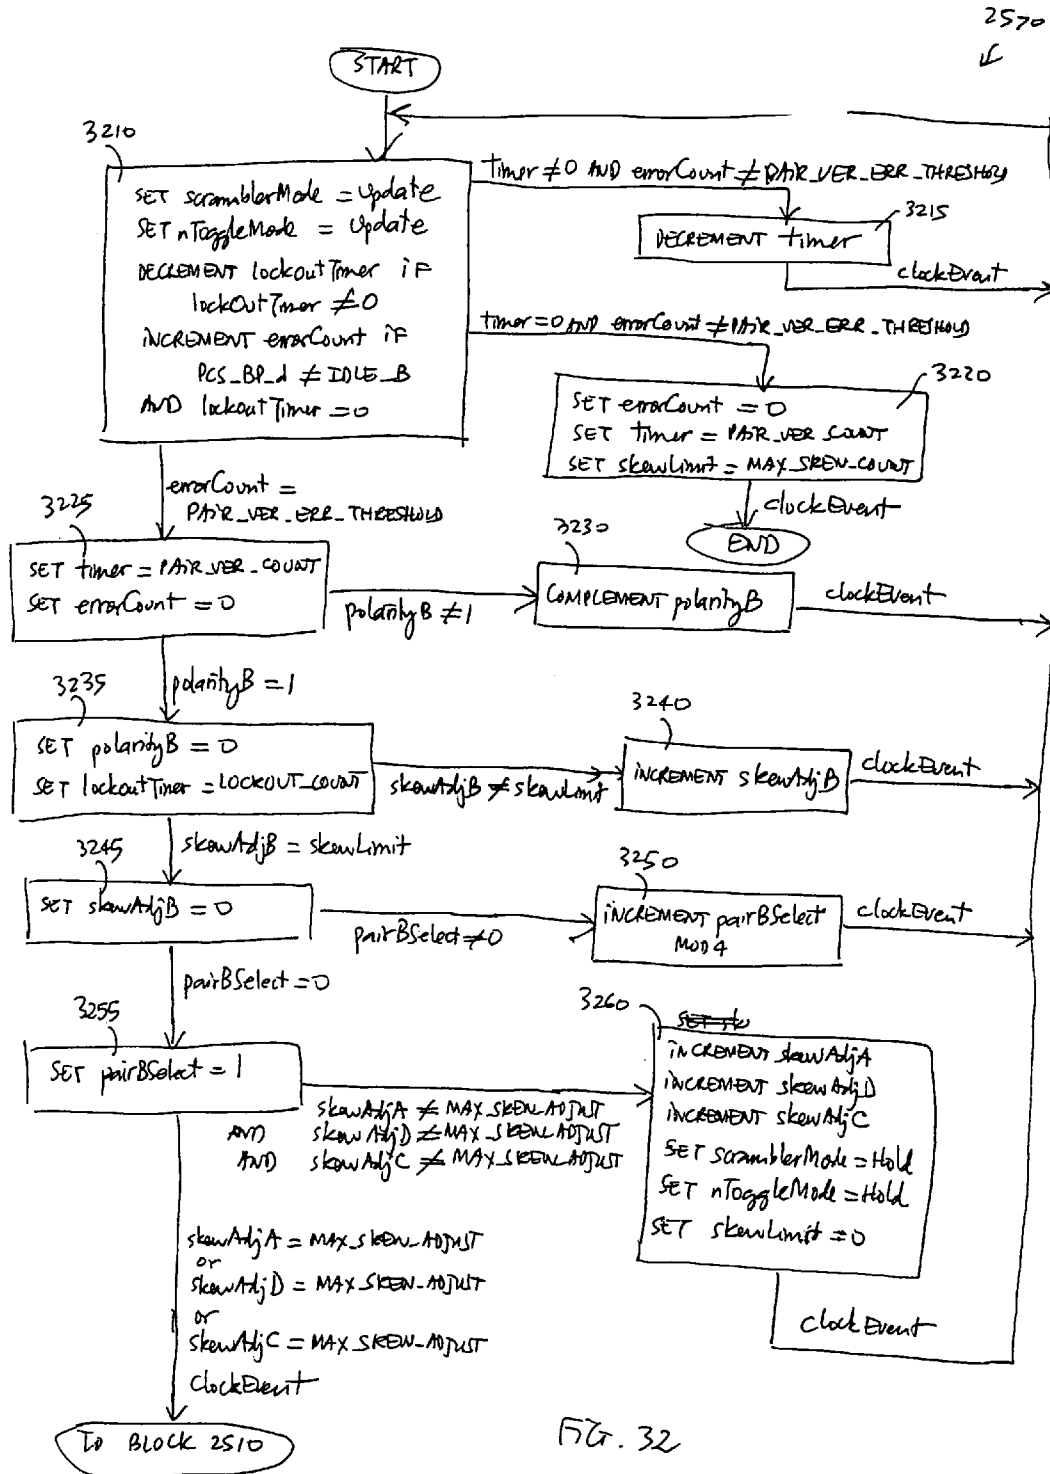 2570
START
3210
SET scramblerMode = Update
SET nToggleMode = Update
DECREMENT lockoutTimer iF
lockOutTimer ≠ 0
iNCREMENT errorCount iF
PCS_BP_d ≠ IDLE_B
AND lockoutTimer = 0
timer ≠ 0 AND errorCount ≠ PAiR_VER_ERR_THRESHOLD
3215
DECREMENT timer
clockEvent
timer = 0 AND errorCount ≠ PAiR_VER_ERR_THRESHOLD
3220
SET errorCount = 0
SET timer = PAiR_VER_COUNT
SET skewLimit = MAX_SKEW_COUNT
clockEvent
END
errorCount =
PAiR_VER_ERR_THRESHOLD
3225
SET timer = PAiR_VER_COUNT
SET errorCount = 0
polarityB ≠ 1
3230
COMPLEMENT polarityB
clockEvent
polarityB = 1
3235
SET polarityB = 0
SET lockoutTimer = LOCKOUT_COUNT
skewAdjB ≠ skewLimit
3240
iNCREMENT skewAdjB
clockEvent
skewAdjB = skewLimit
3245
SET skewAdjB = 0
pairBSelect ≠ 0
3250
iNCREMENT pairBSelect
MOD 4
clockEvent
pairBSelect = 0
3255
SET pairBSelect = 1
skewAdjA ≠ MAX_SKEW_ADJUST
AND skewAdjD ≠ MAX_SKEW_ADJUST
AND skewAdjC ≠ MAX_SKEW_ADJUST
3260
iNCREMENT skewAdjA
iNCREMENT skewAdjD
iNCREMENT skewAdjC
SET scramblerMode = Hold
SET nToggleMode = Hold
SET skewLimit = 0
clockEvent
skewAdjA = MAX_SKEW_ADJUST
or
skewAdjD = MAX_SKEW_ADJUST
or
skewAdjC = MAX_SKEW_ADJUST
clockEvent
To BLOCK 2510
FIG. 32